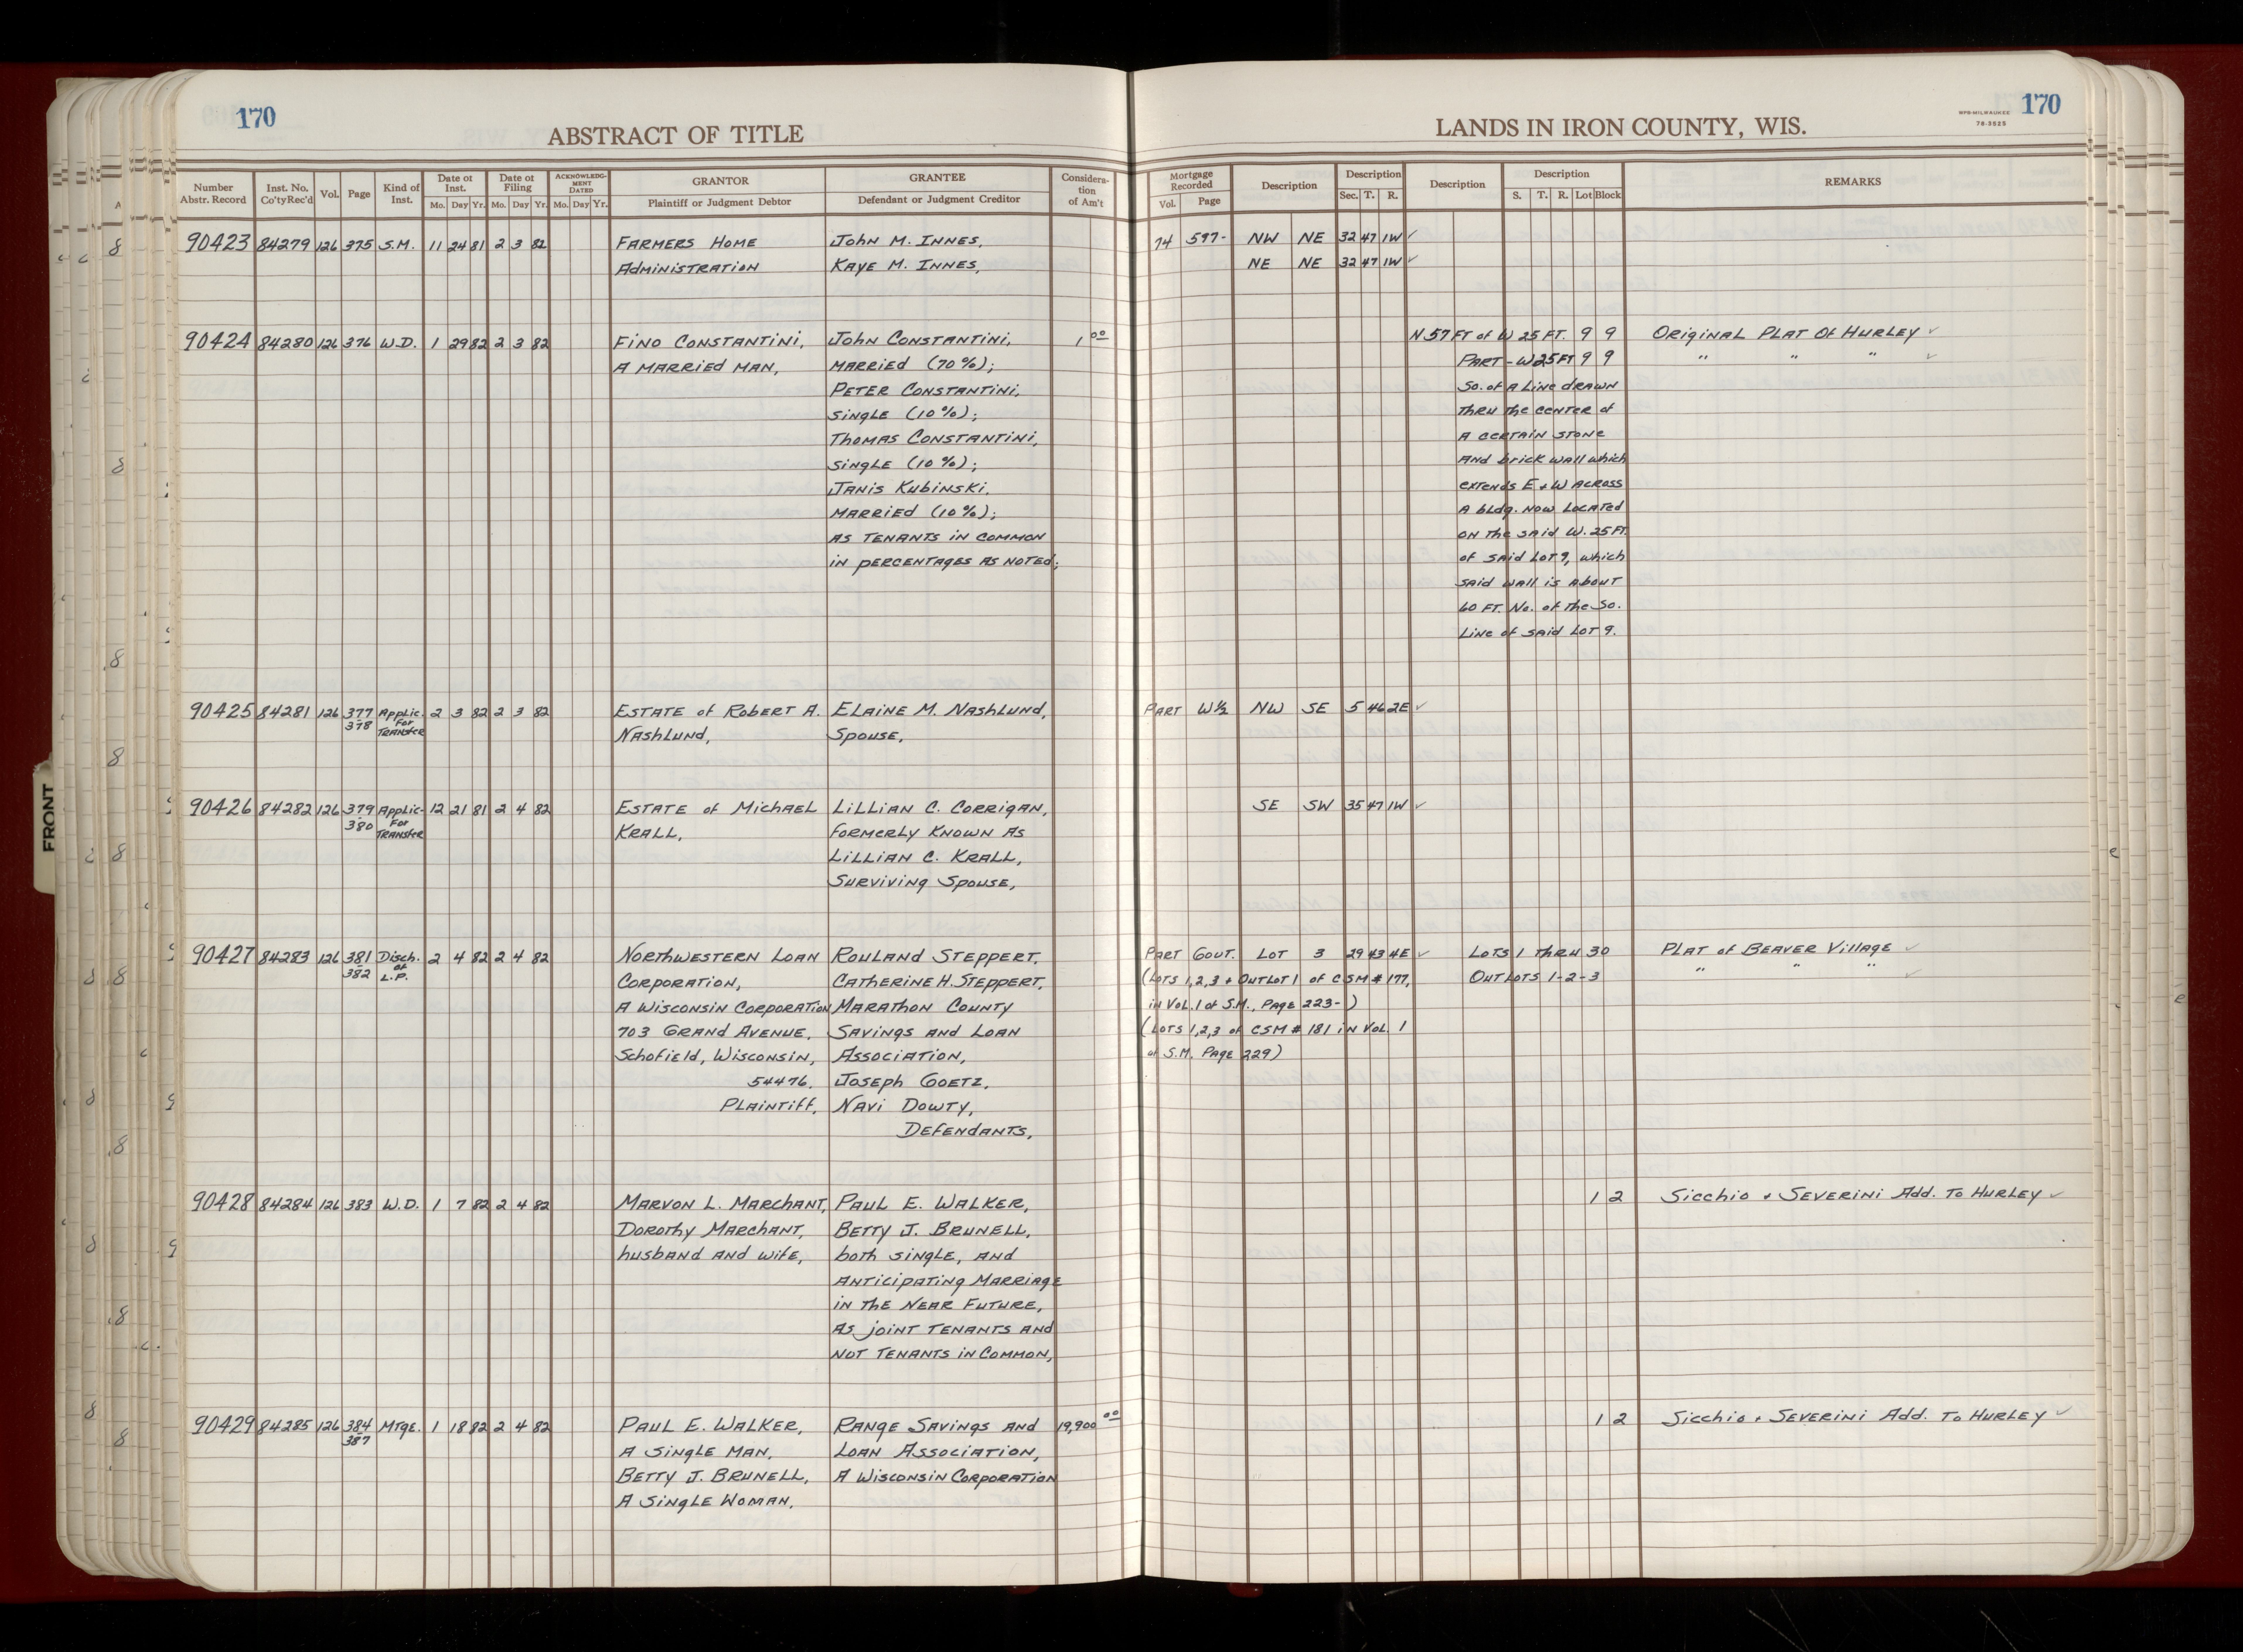 170
ABSTRACT OF TITLE
Number Abstr. Record
Inst. No. Co'ty Rec'd
Vol.
Page
Kind of Inst.
Date of Inst. Mo. Day Yr.
Date of Filing Mo. Day Yr.
ACKNOWLEDG-MENT DATED Mo. Day Yr.
GRANTOR Plaintiff or Judgment Debtor
GRANTEE Defendant or Judgment Creditor
Considera-tion of Am't
90423 84279 126 375 S.M. 11 24 81 2 3 82 FARMERS HOME John M. INNES,
ADMINISTRATION KAYE M. INNES,
90424 84280 126 376 W.D. 1 29 82 2 3 82 FINO CONSTANTINI, John CONSTANTINI, 1 00
A MARRIED MAN, MARRIED (70%);
PETER CONSTANTINI,
SINGLE (10%);
THOMAS CONSTANTINI,
SINGLE (10%);
JANIS KUBINSKI,
MARRIED (10%);
AS TENANTS IN COMMON
IN PERCENTAGES AS NOTED;
90425 84281 126 377 Applic. 2 3 82 2 3 82 ESTATE of ROBERT A. ELAINE M. NASHLUND,
378 For TRANSfer NASHLUND, SPOUSE,
90426 84282 126 379 Applic- 12 21 81 2 4 82 ESTATE of MICHAEL LILLIAN C. CORRIGAN,
380 For TRANSfer KRALL, FORMERLY KNOWN AS
LILLIAN C. KRALL,
SURVIVING SPOUSE,
90427 84283 126 381 Disch. 2 4 82 2 4 82 NORTHWESTERN LOAN ROULAND STEPPERT,
382 of L.P. CORPORATION, CATHERINE H. STEPPERT,
A WISCONSIN CORPORATION MARATHON COUNTY
703 GRAND AVENUE, SAVINGS AND LOAN
SCHOFIELD, WISCONSIN, ASSOCIATION,
54476, JOSEPH GOETZ,
PLAINTIFF, NAVI DOWTY,
DEFENDANTS,
90428 84284 126 383 W.D. 1 7 82 2 4 82 MARVON L. MARCHANT, PAUL E. WALKER,
DOROTHY MARCHANT, BETTY J. BRUNELL,
husband AND wife, both SINGLE, AND
ANTICIPATING MARRIAGE
IN THE NEAR FUTURE,
AS JOINT TENANTS AND
NOT TENANTS IN COMMON,
90429 84285 126 384 MTGE. 1 18 82 2 4 82 PAUL E. WALKER, RANGE SAVINGS AND 19,900 00
387 A SINGLE MAN, LOAN ASSOCIATION,
BETTY J. BRUNELL, A WISCONSIN CORPORATION
A SINGLE WOMAN,
FRONT
LANDS IN IRON COUNTY, WIS.
WPB-MILWAUKEE
78-3525
170
Mortgage Recorded Vol. Page
Description
Description Sec. T. R.
Description
Description S. T. R. Lot Block
REMARKS
74 597- NW NE 32 47 1W ✓
NE NE 32 47 1W ✓
N 57 FT of W 25 FT. 9 9 ORIGINAL PLAT OF HURLEY ✓
PART - W 25 FT 9 9 " " " ✓
So. of A Line drawn
thru the center of
A certain stone
And brick wall which
extends E + W Across
A bldg. now located
on the said W. 25 FT.
of said Lot 9, which
said wall is about
60 FT. No. of the So.
Line of said LOT 9.
PART W½ NW SE 5 46 2E ✓
SE SW 35 47 1W ✓
PART GOUT. LOT 3 29 43 4E ✓ LOTS 1 THRU 30 PLAT of BEAVER Village ✓
(LOTS 1,2,3 + OUTLOT 1 of CSM # 177, OUTLOTS 1-2-3 " " " ✓
in VOL. 1 of S.M., PAGE 223- )
(LOTS 1,2,3 of CSM # 181 in VOL. 1
of S.M. PAGE 229)
1 2 Sicchio + SEVERINI Add. To HURLEY ✓
1 2 Sicchio + SEVERINI Add. To HURLEY ✓